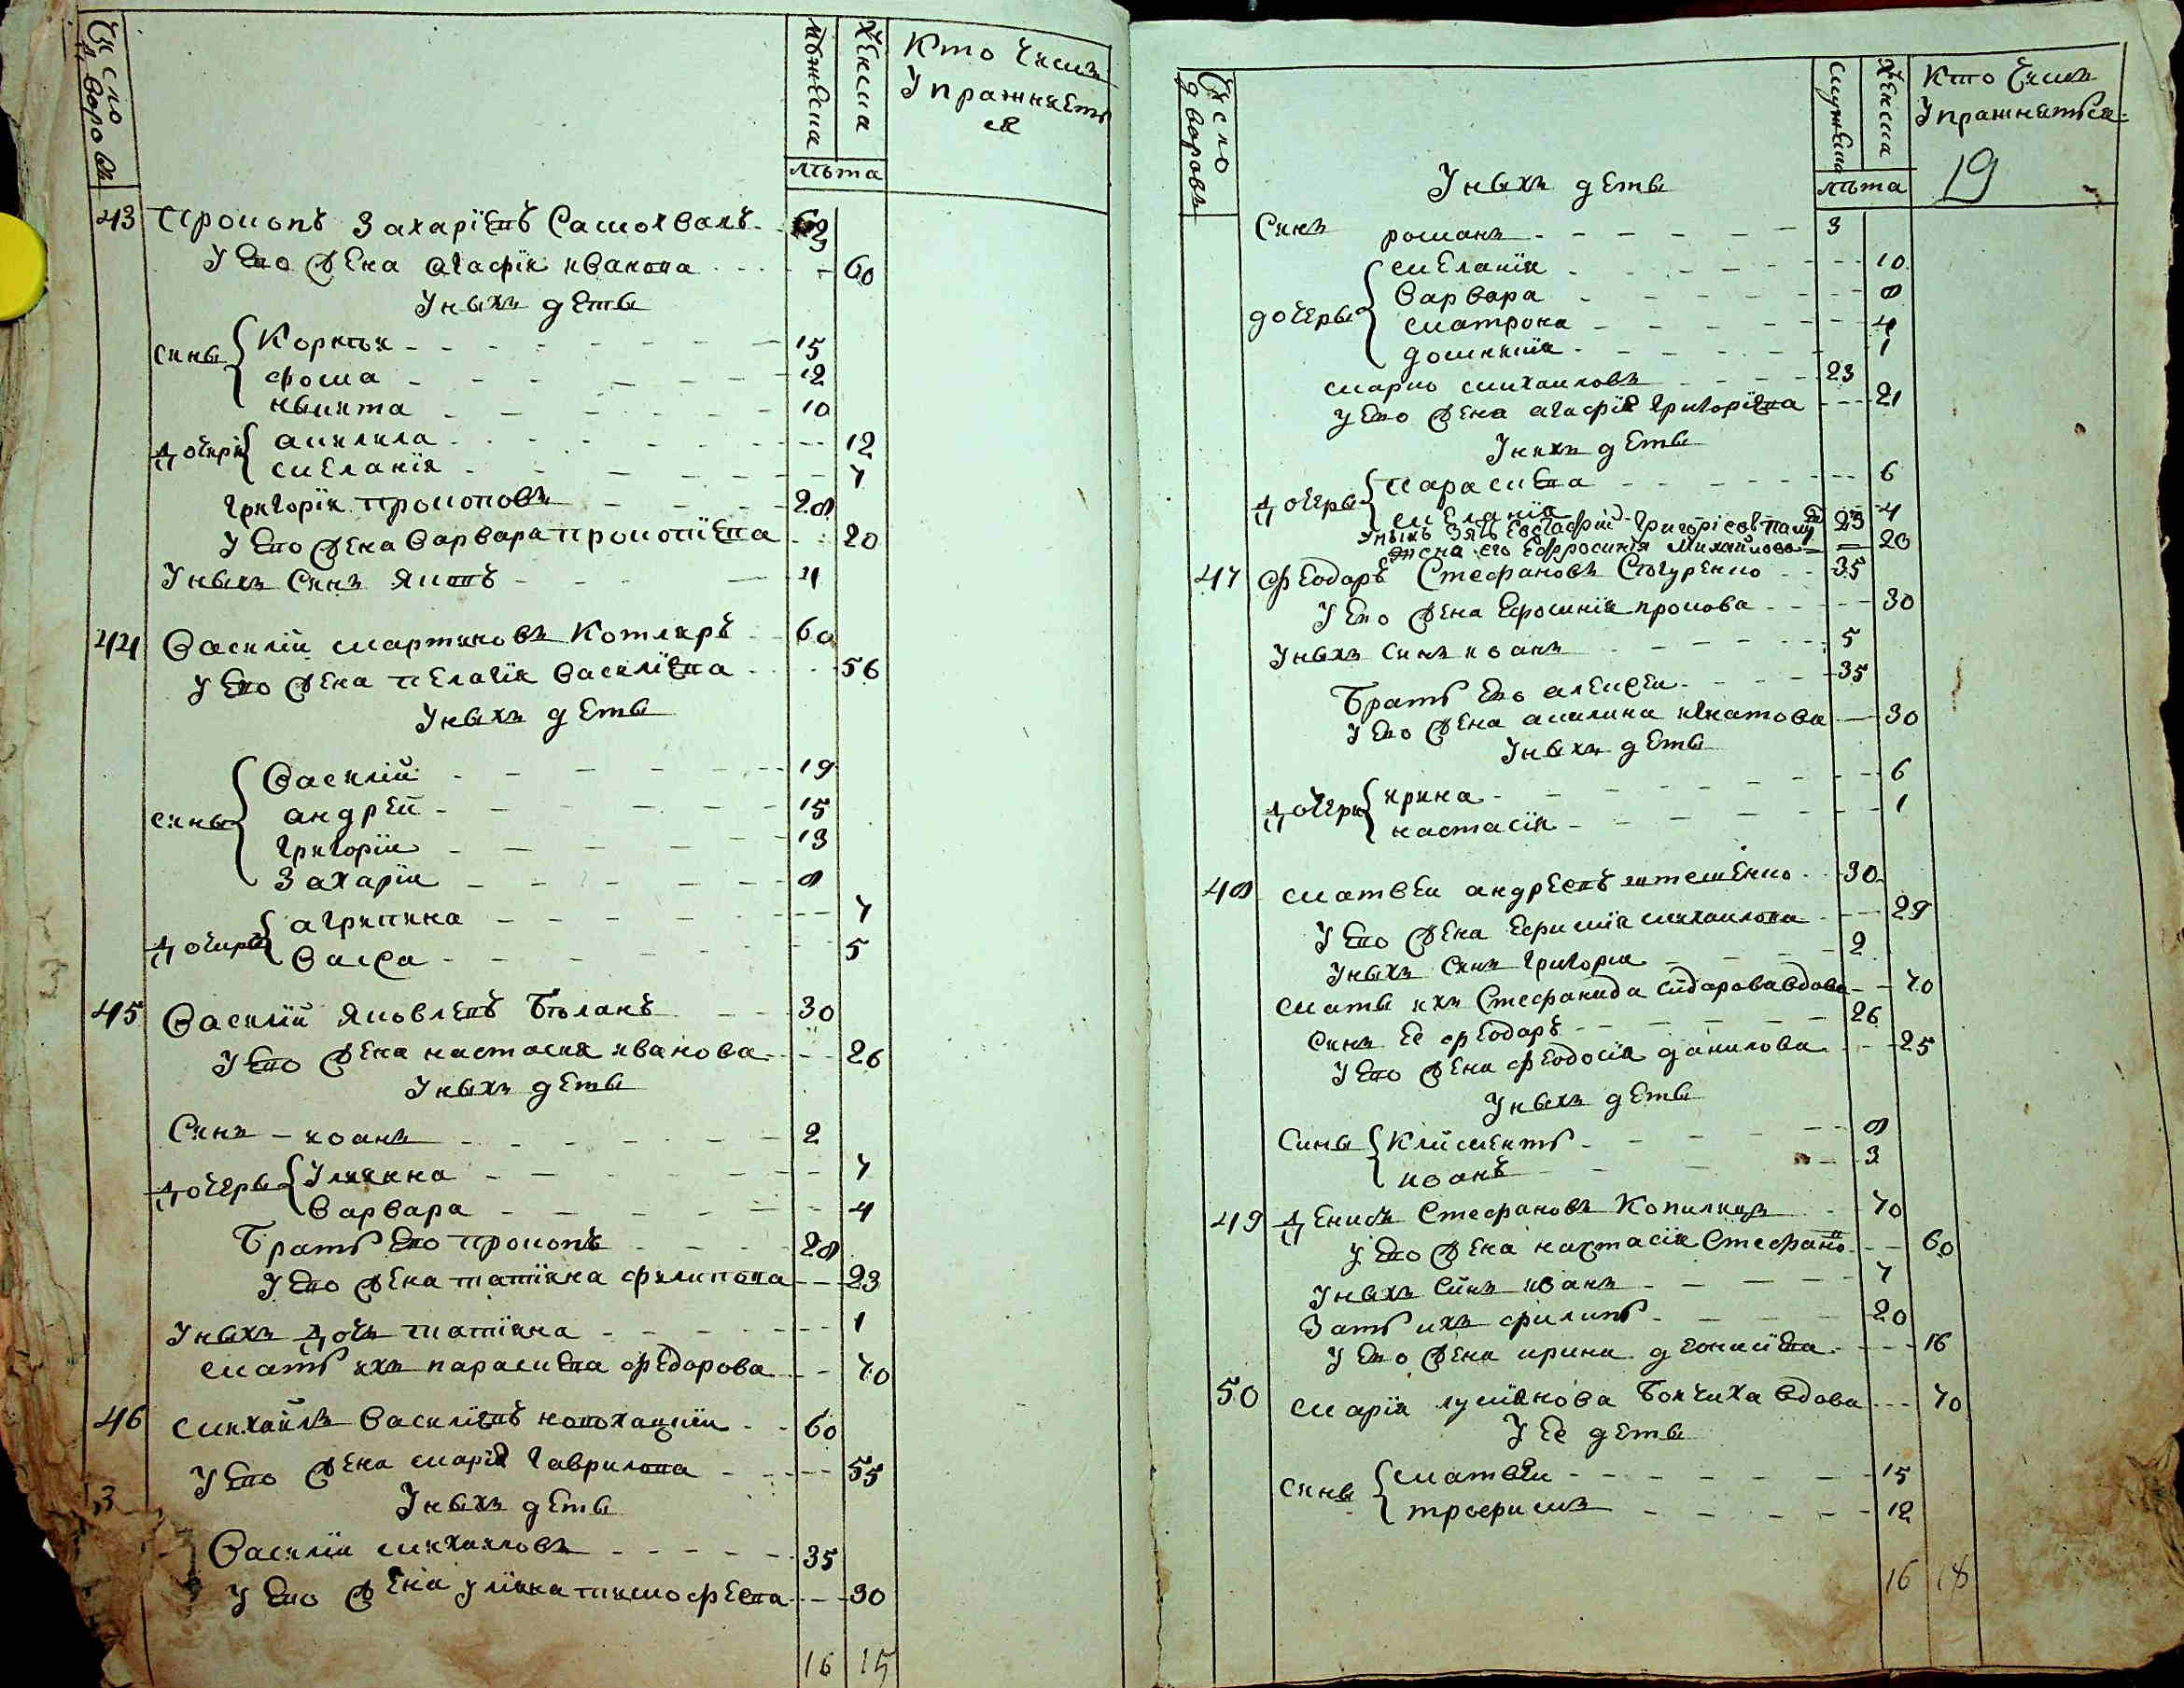 Число дворовъ
мужеска
женска
лѣта
Кто чемъ
Упражняетъ
ся
43 Прокопъ Захаріевъ Самохвалъ
У Его Жена Агафія иванова 60
Уныхъ деты
сины Корнѣи 15
фома 12
Никита 10
Дочери акилина 12
меланія 7
григорія прокоповъ 28
У Его Жена варвара прокопіева 20
Уныхъ Синъ Яковъ 4
44 Василій мартиновъ Котляръ 60
У Его Жена пелагія василіева 56
Уныхъ деты
сины Василій 19
андрей 15
григорій 13
Захарія 8
Дочиры агрипина 7
Васса 5
45 Василій Яковлевъ Бѣланъ 30
У Его Жена настасия иванова 26
Уныхъ деты
Синъ иоанъ 2
Дочеры Улияна 7
Варвара 4
Братъ Его Прокопъ 28
У Его Жена татіяна филипова 23
Уныхъ Дочъ татіяна 1
мать ихъ параскева федорова 70
46 михаилъ Василіевъ 60
У Его Жена марія гаврилова 55
Уныхъ деты
Василій михаиловъ 35
У Его Жена улияна тимофеева 30
16 15
Число дворовъ
мужеска
женска
лѣта
Кто чемъ
Упражняется
19
Уныхъ деты
Синъ романъ 3
дочеры меланія 10
Варвара 8
матрона 4
домникія 1
марко михаиловъ 23
У Его Жена агафія григоріева 21
Уныхъ деты
Дочеры Параскева 6
меланія 4
Уныхъ Зять Евстафій Григоріевъ 23
жена его Ефросинія Михайлова 20
47 Феодоръ Стефановъ 35
У Его Жена Ефросинія прокова 30
Уныхъ синъ иоанъ 5
Братъ Его алексеи 35
У Его Жена акилина игнатова 30
Уныхъ деты
Дочеры ирина 6
настасія 1
48 матвеи андреевъ 30
У Его Жена Ефимія михаилова 29
Уныхъ Синъ григорія 2
мать ихъ Стефанида сидорова вдова 70
Синъ Ее феодоръ 26
У Его Жена феодосія данилова 25
Уныхъ деты
Сины Климентъ 8
иоанъ 3
49 Денисъ Стефановъ Копилецъ 70
У Его Жена настасія Стефано 60
Уныхъ Синъ иоанъ 7
Зять ихъ филипъ 20
У Его Жена ирина 16
50 марія лукіянова Болчиха вдова 70
У Ее деты
Сины матвеи 15
трофимъ 12
16 18